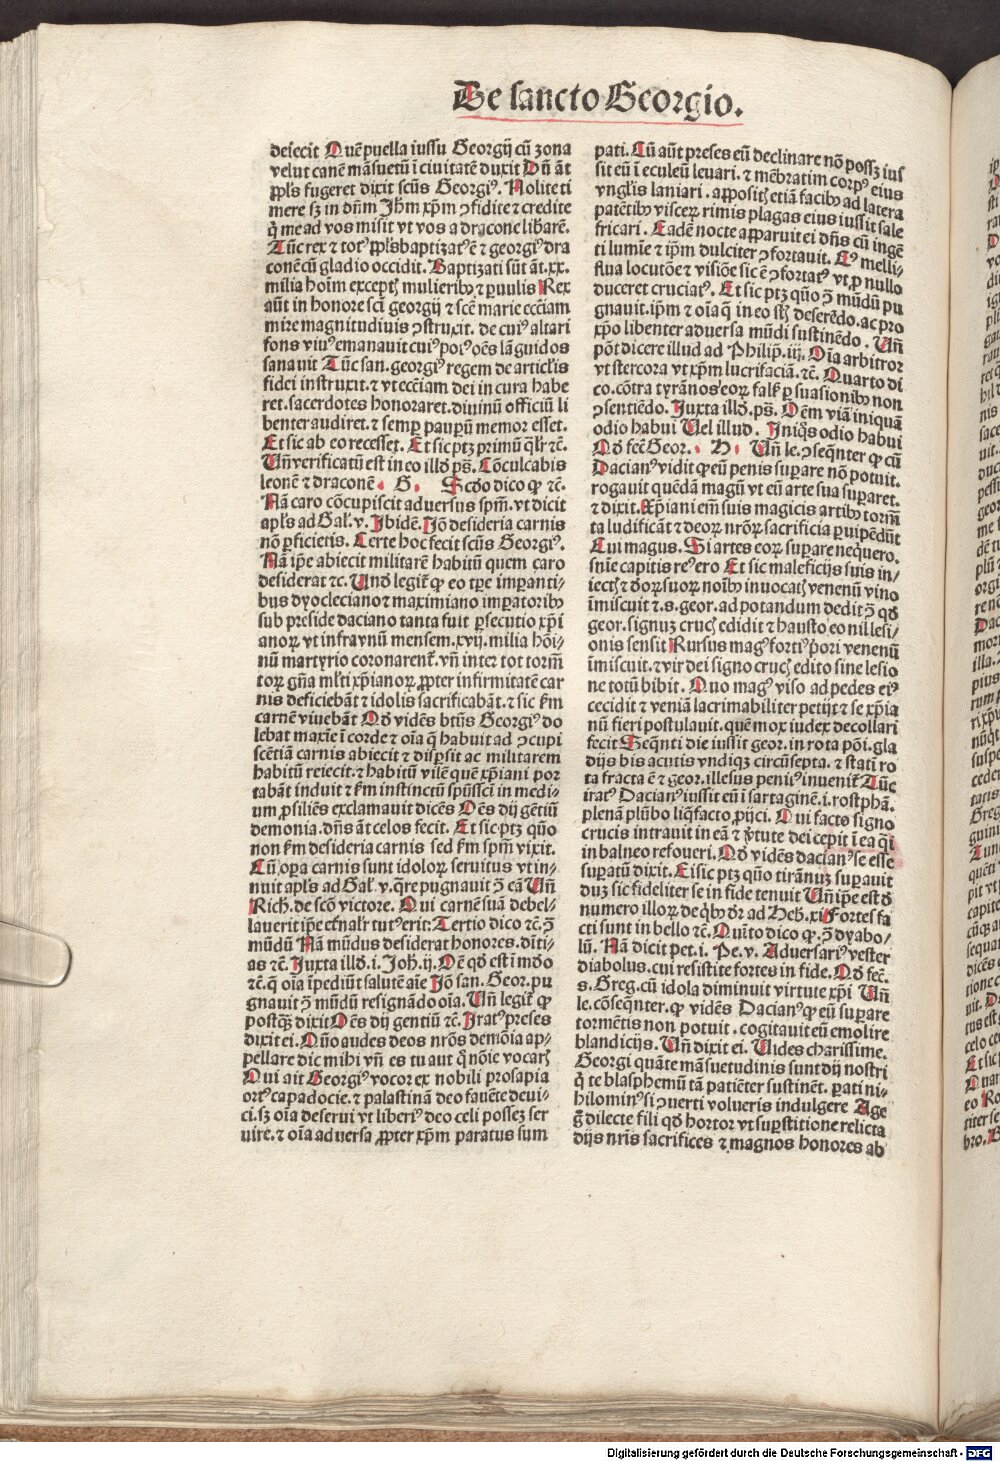 De sancto Georgio.
deiecit Quē puella iussu Georgij cū zona
velut canē māsuetū ī ciuitatē duxit Dn̄ āt
ꝓpl's fugeret dixit scūs Georgiꝰ. Nolite ti
mere sꝫ in dn̄m Jhm xp̄m ꝯfidite ⁊ credite
q̄ me ad vos misit vt vos a dracone liberē.
Tūc rex ⁊ totꝰ ꝓpl's baptizatꝰ ē ⁊ georgiꝰ dra
conē cū gladio occidit. Baptizati sūt āt .xx.
milia hoīm exceptꝭ mulieribꝰ ⁊ ꝑuulis Rex
aūt in honore scī georgij ⁊ scē marie ecc̄iam
mire magnitudiuis ꝯstruxit. de cuiꝰ altari
fons viuꝰ emanauit cuiꝰ poiꝰ oēs lāguidos
sanauit Tūc san. georgiꝰ regem de articl'is
fidei instruxit. ⁊ vt ecc̄iam dei in cura habe
ret. sacerdotes honoraret. diuinū officiū li
benter audiret. ⁊ semꝑ pauꝑū memor esset.
Et sic ab eo recesset. Et sic ptꝫ primū ql'r ⁊c̄.
Vn̄ verificatū est in eo illd' ps̄. Cōculcabis
leonē ⁊ draconē. G. Scd'o dico ꝙ ⁊c̄.
Nā caro cōcupiscit aduersus sp̄m. vt dicit
apl's ad Gal'. v. Ibidē. Jō desideria carnis
nō ꝑficietis. Certe hoc fecit scūs Georgiꝰ.
Nā ip̄e abiecit militarē habitū quem caro
desiderat ⁊c. Vnd' legit̄ ꝙ eo tꝑe imꝑanti/
bus dyocleciano ⁊ maximiano imꝑatoribꝰ
sub preside daciano tanta fuit ꝑsecutio xp̄i
anoꝝ vt infra vnū mensem .xvij. milia hōi/
nū martyrio coronarent̄. vn̄ inter tot torm̄
toꝝ gn̄a ml'ti xp̄ianoꝝ ꝓpter infirmitatē car
nis deficiebāt ⁊ idolis sacrificabāt. ⁊ sic ẜm
carnē viuebāt Qd' vidēs btūs Georgiꝰ do
lebat maxīe ī corde ⁊ oīa q̄ habuit ad ꝯcupi
scētiā carnis abiecit ⁊ disꝑsit ac militarem
habitū reiecit. ⁊ habitū vilē quē xp̄iani por
tabāt induit ⁊ ẜm instinctū sp̄ūssc̄i in medi/
um ꝓsiliēs exclamauit dicēs Oēs dij gētiū
demonia. dn̄s āt celos fecit. Et sic ptꝫ quō
non ẜm desideria carnis sed ẜm sp̄m vixit.
Cū opa carnis sunt idoloꝝ seruitus vt in/
nuit apl's ad Gal'. v. q̄re pugnauit ꝯ̄ eā Vn̄
Rich. de scō victore. Qui carnē suā debel/
lauerit ip̄e et̄nal'r tutꝰ erit: Tertio dico ⁊c̄. ꝯ̄
mūdū Nā mūdus desiderat honores. diti/
as ⁊c̄. Juxta illd'. i. Joh. ij. Oē qd' est ī mūdo
⁊c̄. q̄ oīa īpediūt salutē aīe Jō san. Geor. pu
gnauit ꝯ̄ mūdū resignādo oīa. Vn̄ legit̄ ꝙ
postq̄ꝫ dixit Oēs dij gentiū ⁊c̄. Iratꝰ preses
dixit ei. Quō audes deos nrōs demōia ap/
pellare dic mihi vn̄ es tu aut q̄ nōie vocarꝭ
Qui ait Georgiꝰ vocor ex nobili prosapia
ortꝰ capadocie. ⁊ palastinā deo fauēte deui/
ci. sꝫ oīa deserui vt liberiꝰ deo celi posseꝫ ser
uire. ⁊ oīa aduersa ꝓpter xp̄m paratus sum
pati. Cū aūt preses eū declinare nō possꝫ ius
sit eū ī eculeū leuari. ⁊ mēbratim corpꝰ eius
vngl'is laniari. appositꝭ etiā facibꝰ ad latera
patētibꝰ visceꝝ rimis plagas eius iussit sale
fricari. Eadē nocte apparuit ei dn̄s cū ingē
ti lumīe ⁊ ip̄m dulciter ꝯfortauit. Eꝰ melli/
flua locutōe ⁊ visiōe sic ē ꝯfortatꝰ vt ꝓ nullo
duceret cruciatꝰ. Et sic ptꝫ quō ꝯ̄ mūdū pu
gnauit. ip̄m ⁊ oīa q̄ in eo st̄ deserēdo. ac pro
xp̄o libenter aduersa mūdi sustinēdo. Vn̄
pōt dicere illud ad Philip̄. iij. Oīa arbitror
vt stercora vt xp̄m lucrifaciā. ⁊c̄. Quarto di
co. cōtra tyrānos eoꝝ falsꝭ ꝑsuasionibꝰ non
ꝯsentiēdo. Juxta illd'. ps̄. Oēm viā iniquā
odio habui Vel illud. Iniq̄s odio habui
Qd' fec̄ Geor. H. Vn̄ le. ꝯseq̄nter ꝙ cū
Dacianꝰ vidit ꝙ eū penis suꝑare nō potuit.
rogauit quēdā magū vt eū arte sua suꝑaret.
⁊ dixit. Xp̄iani em̄ suis magicis artibꝰ torm̄
ta ludificāt ⁊ deoꝝ nrōꝝ sacrificia ꝑuipēdūt
Cui magus. Si artes eoꝝ suꝑare neq̄uero.
sn̄ie capitis reꝰ ero Et sic maleficijs suis in/
iectꝭ ⁊ d'oꝝ suoꝝ noīb⁹ inuocatꝭ venenū vino
īmiscuit ⁊ .s. geor. ad potandum dedit ꝯ̄ qd'
geor. signuꝫ crucꝭ edidit ⁊ hausto eo nil lesi/
onis sensit Rursus magꝰ fortiꝰ p̄ori venenū
īmiscuit. ⁊ vir dei signo crucꝭ edito sine lesio
ne totū bibit. Quo magꝰ viso ad pedes eiꝰ
cecidit ⁊ veniā lacrimabiliter petijt ⁊ se xp̄ia
nū fieri postulauit. quē mox iudex decollari
fecit Seq̄nti die iussit geor. in rota pōi. gla
dijs bis acutis vndiqꝫ circūsepta. ⁊ stati ro
ta fracta ē ⁊ geor. illesus peniꝰ inuenit̄ Tūc
iratꝰ Dacianꝰ iussit eū ī sartaginē .i. rostphā.
plenā plūbo liq̄facto ꝓijci. Qui facto signo
crucis intrauit in eā ⁊ v̄tute dei cepit ī ea q̄i
in balneo refoueri. Qd' vidēs dacianꝰ se esse
suꝑatū dixit. Ei sic ptꝫ quō tirānuꝫ suꝑauit
duꝫ sic fideliter se in fide tenuit Vn̄ ip̄e est d'
numero illoꝝ de q̄bꝰ d'r ad Heb. xi Fortes fa
cti sunt in bello ⁊c̄. Quīto dico ꝙ .ꝯ̄ dyabo/
lū. Nā dicit pet. i. Pe. v. Aduersariꝰ vester
diabolus. cui resistite fortes in fide. Qd' fec̄.
s. Greg. cū idola diminuit virtute xp̄i Vn̄
le. cōseq̄nter. ꝙ vidēs Dacianꝰ ꝙ eū suꝑare
tormētis non potuit. cogitauit eū emolire
blandicijs. Vn̄ dixit ei. Vides charissime.
Georgi quāte māsuetudinis sunt dij nostri
q̄ te blasphemū tā patiēter sustinēt. ꝑati ni/
hilominꝰ si ꝯuerti volueris indulgere Age
g̊ dilecte fili qd' hortor vt suꝑstitione relicta
dijs nr̄is sacrifices ⁊ magnos honores ab
Digitalisierung gefördert durch die Deutsche Forschungsgemeinschaft - DFG